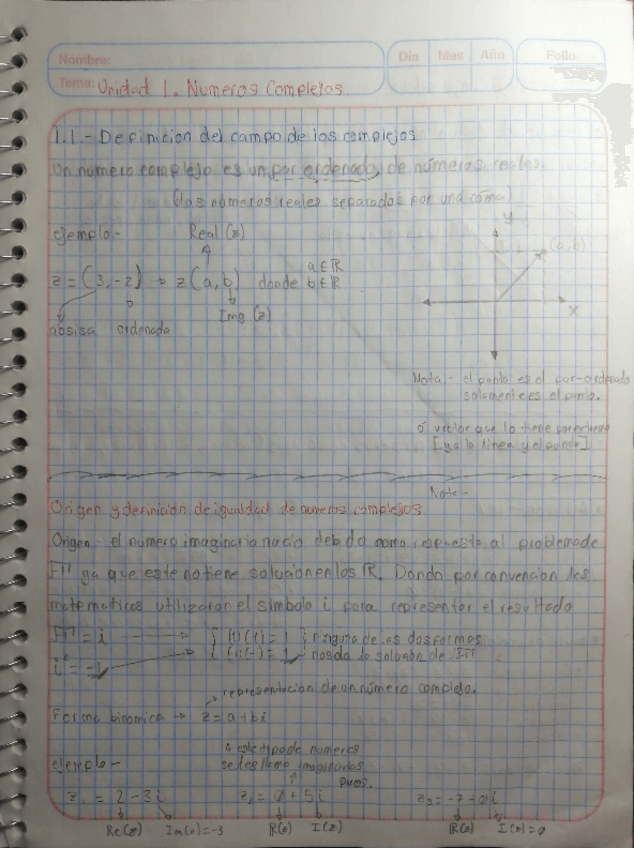 Nombre:
Dia Mes Año Folio
Tema: Unidad 1. Numeros Complejos.
1.1.- Definicion del campo de los complejos
Un numero complejo es un par ordenado de números reales.
(dos números reales separados por una coma)
ejemplo.- Real (z)
z = (3, -2) → z(a, b) donde a ∈ ℝ b ∈ ℝ
absisa ordenada Img (z)
y
(a, b)
x
Nota.- el punto es el par-ordenado
solamente es el punto.
ó vector que lo tiene por extremo
[ya la linea y el punto]
Nota.-
Origen y definición de igualdad de numeros complejos
Origen.- el numero imaginario nacio debido como respuesta al problema de
√-1 ya que este no tiene solucion en los ℝ. Dando por convención los
matematicos utilizaran el simbolo i para representar el resultado
√-1 = i → { (1)(1) = 1 } ninguna de las dos formas
i² = -1 → nos da la solución de √-1
representacion de un número complejo.
Forma binomica → z = a + bi
ejemplo.- a este tipo de numeros
se les llama imaginarios
puros.
z₁ = 2 - 3i z₂ = 0 + 5i z₃ = -7 - 0i
Re(z) Im(z) = -3 R(z) I(z) R(z) I(z) = 0